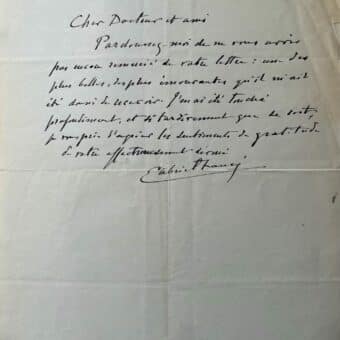 Cher Docteur et ami
Pardonnez moi de ne vous avoir
pas encore remercié de votre lettre : une des
plus belles, des plus émouvantes qu'il m'ait
été donné de recevoir. J'en ai été touché
profondément, et si tardivement que ce soit,
je vous prie d'agréer les sentiments de gratitude
de votre affectueusement dévoué